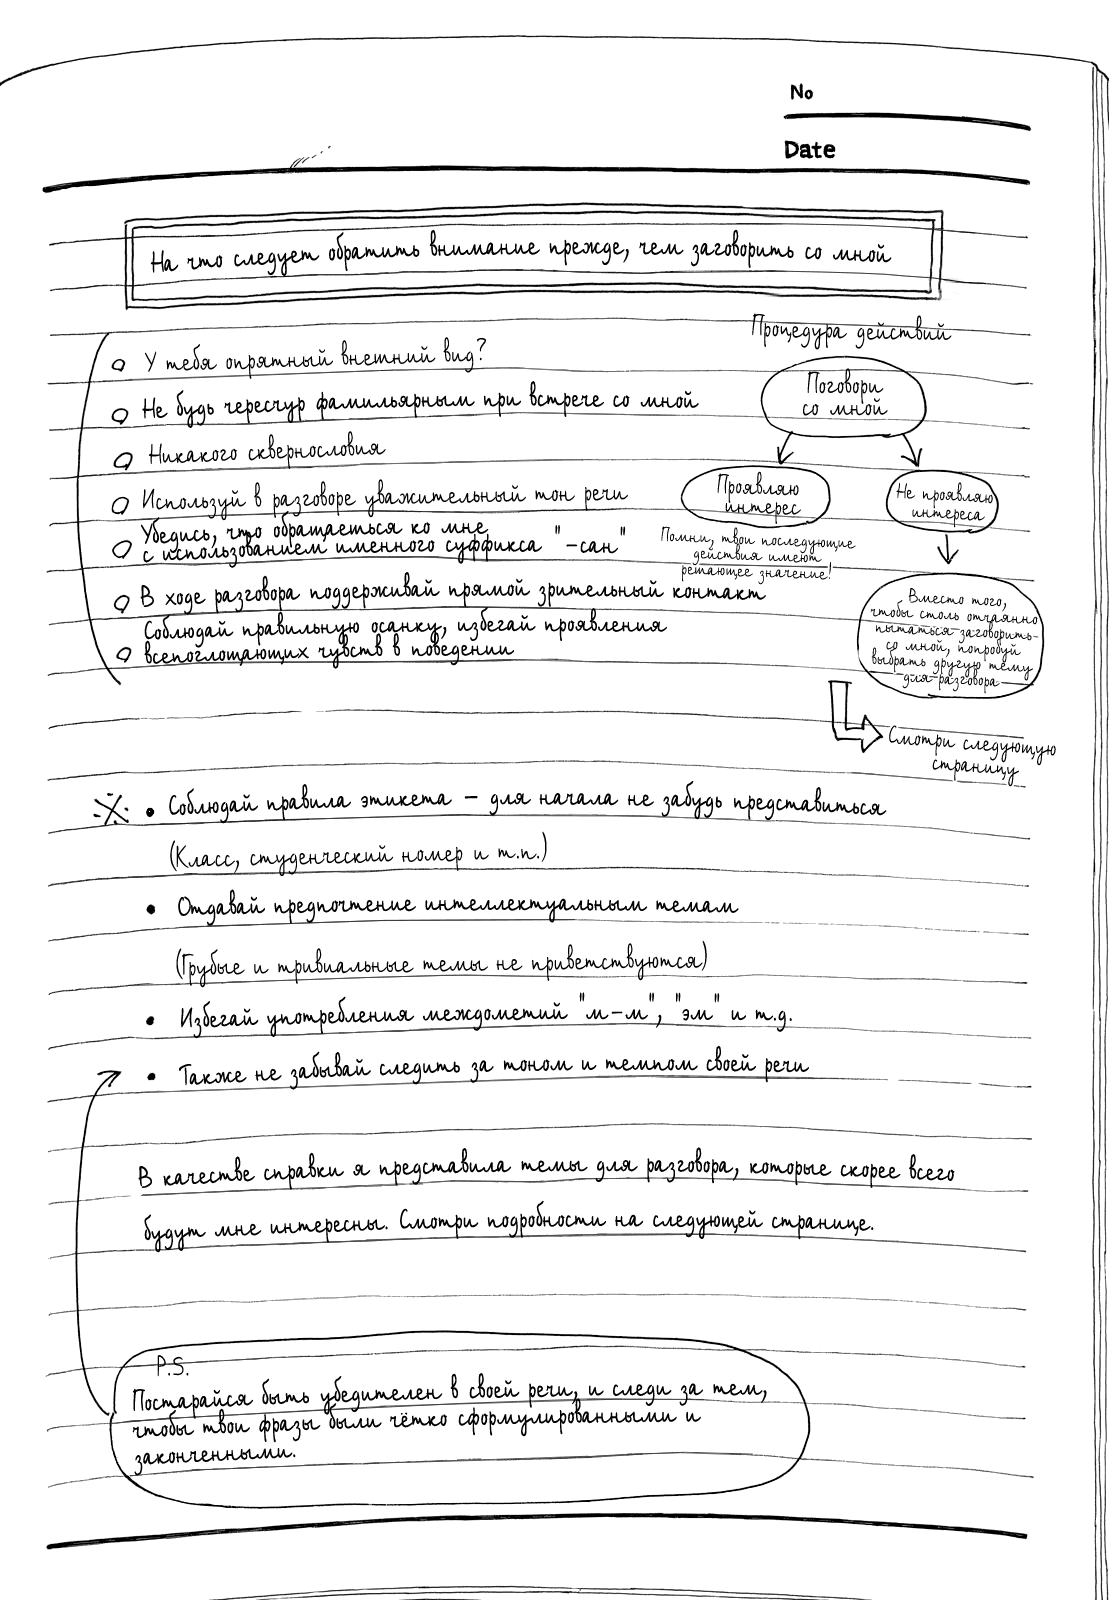 No
Date
На что следует обратить внимание прежде, чем заговорить со мной
У тебя опрятный внешний вид?
Не будь чересчур фамильярным при встрече со мной
Никакого сквернословия
Используй в разговоре уважительный тон речи
Убедись, что обращаешься ко мне
с использованием именного суффикса "-сан"
В ходе разговора поддерживай прямой зрительный контакт
Соблюдай правильную осанку, избегай проявления
всепоглощающих чувств в поведении
Процедура действий
Поговори
со мной
Проявляю
интерес
Помни, твои последующие
действия имеют
решающее значение!
Не проявляю
интереса
Вместо того,
чтобы столь отчаянно
пытаться заговорить
со мной, попробуй
выбрать другую тему
для разговора
Смотри следующую
страницу
※ • Соблюдай правила этикета – для начала не забудь представиться
(Класс, студенческий номер и т.п.)
• Отдавай предпочтение интеллектуальным темам
(Грубые и тривиальные темы не приветствуются)
• Избегай употребления междометий "м-м", "эм" и т.д.
• Также не забывай следить за тоном и темпом своей речи
В качестве справки я представила темы для разговора, которые скорее всего
будут мне интересны. Смотри подробности на следующей странице.
P.S.
Постарайся быть убедителен в своей речи, и следи за тем,
чтобы твои фразы были чётко сформулированными и
законченными.